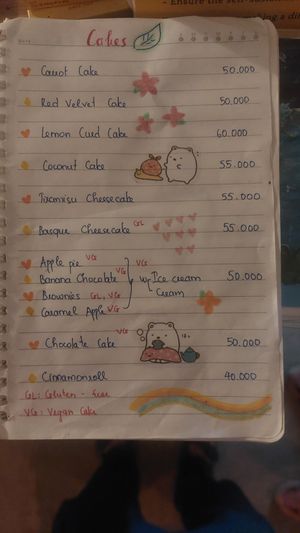 Ensure the self-
Cakes
Carrot Cake 50.000
Red Velvet Cake 50.000
Lemon Curd Cake 60.000
Coconut Cake 55.000
Tiramisu Cheesecake 55.000
Basque Cheesecake GL 55.000
Apple pie VG
Banana Chocolate VG w/ Ice cream VG 50.000
Brownies GL, VG Cream
Caramel Apple VG
Chocolate Cake VG 50.000
Cinnamonroll 40.000
GL: Gluten - free
VG: Vegan Cake